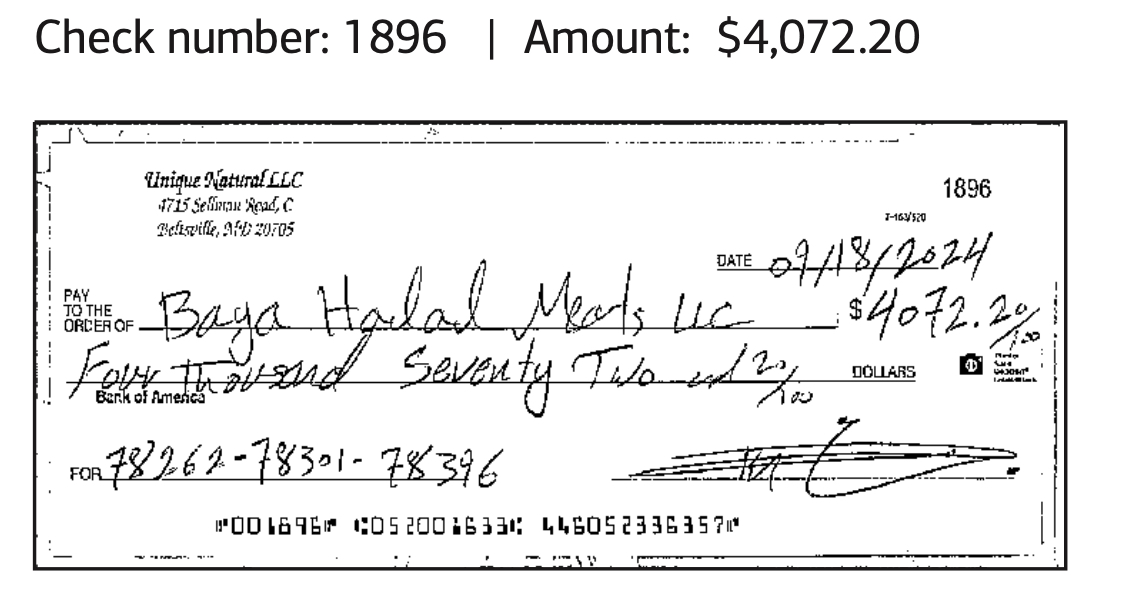 Check number: 1896 | Amount: $4,072.20
Unique Natural LLC
4715 Sellman Road, C
Beltsville, MD 20705
1896
7-163/520
DATE 09/18/2024
PAY TO THE ORDER OF Baga Halal Meats LLC $4072.20/100
Four Thousand Seventy Two and 20/100 DOLLARS
Bank of America
FOR 78262-78301-78396
⑈001896⑈ ⑆052001633⑆ 446052336357⑈